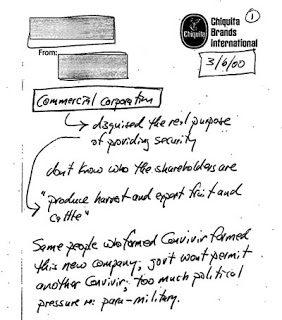 ①
Chiquita
Brands
International
Chiquita
From:
3/6/00
Commercial Corporation
disguised the real purpose
of providing security
don't know who the shareholders are
"produce harvest and export fruit and
cattle"
Same people who formed Convivir formed
this new company; gov't won't permit
another Convivir; too much political
pressure re: para-military.